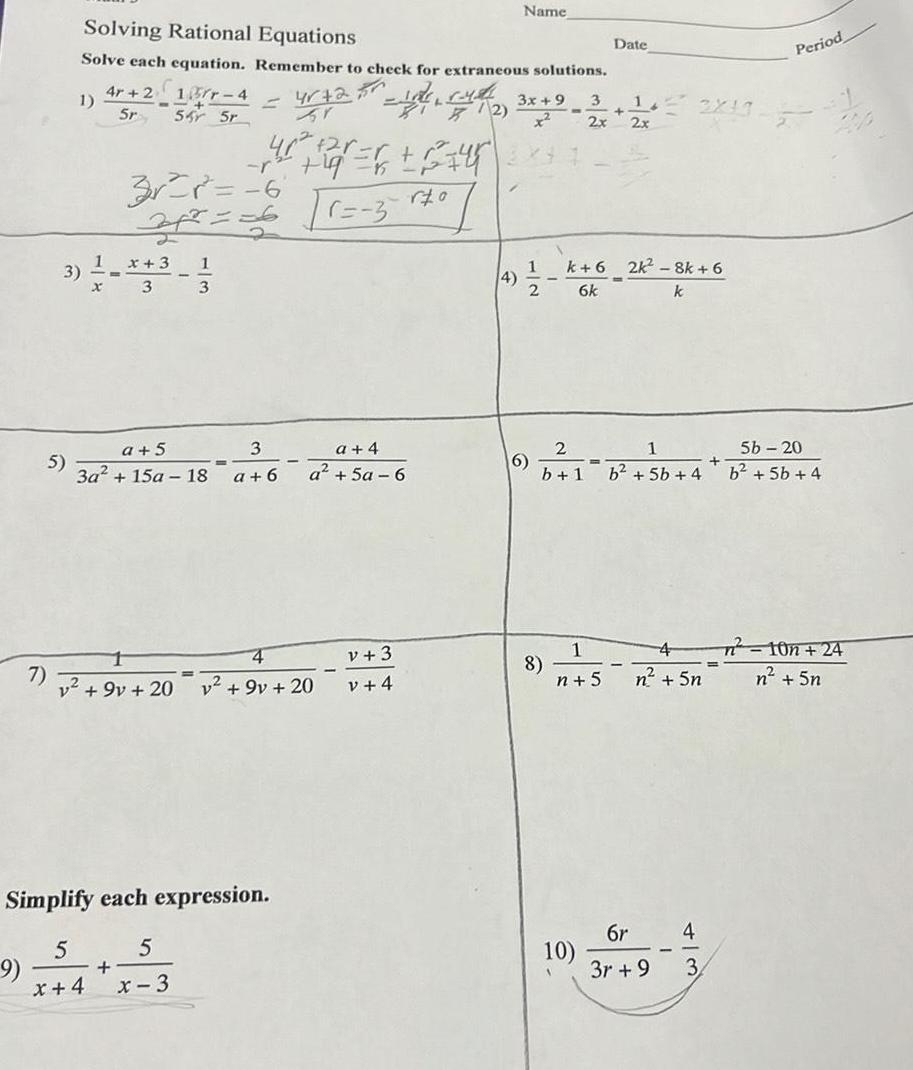 Name
Solving Rational Equations
Date
Period
Solve each equation. Remember to check for extraneous solutions.
1) (4r + 2)/(5r) = 1/5 + (r – 4)/(5r) = (4r+2)/(5r)
2) (3x + 9)/x² = 3/(2x) + 1/(2x)
4r² + 2r = r + r² - 4r
3r² - r² = -6
r = -3 r≠0
3) 1/x = (x + 3)/3 – 1/3
4) 1/2 – (k + 6)/(6k) = (2k² – 8k + 6)/k
5) (a + 5)/(3a² + 15a – 18) = 3/(a + 6) – (a + 4)/(a² + 5a – 6)
6) 2/(b + 1) = 1/(b² + 5b + 4) + (5b – 20)/(b² + 5b + 4)
7) 1/(v² + 9v + 20) = 4/(v² + 9v + 20) – (v + 3)/(v + 4)
8) 1/(n + 5) – 4/(n² + 5n) = (n² – 10n + 24)/(n² + 5n)
Simplify each expression.
9) 5/(x + 4) + 5/(x – 3)
10) 6r/(3r + 9) – 4/3